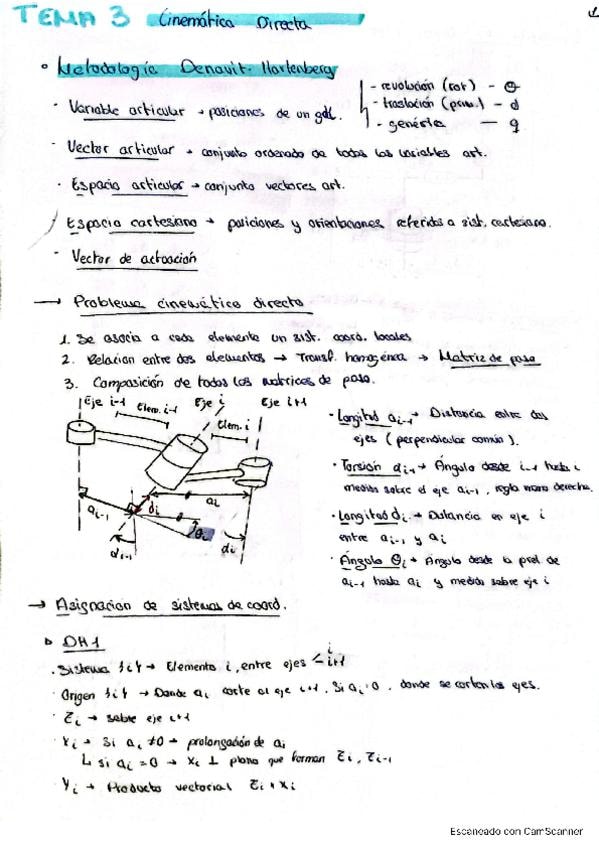 TEMA 3 Cinemática Directa
1
• Metodología Denavit-Hartenberg
· Variable articular → posiciones de un gdl.
- revolución (rot) - θ
- traslación (prism.) - d
- genérica — q
· Vector articular → conjunto ordenado de todas las variables art.
· Espacio articular → conjunto vectores art.
· Espacio cartesiano → posiciones y orientaciones referidos a sist. cartesiano.
· Vector de actuación
→ Problema cinemático directo
1. Se asocia a cada elemento un sist. coord. locales
2. Relacion entre dos elementos → Transf. homogénea → Matriz de paso
3. Composición de todas las matrices de paso.
Eje i-1 Elem. i-1 Eje i Elem. i Eje i+1
a i-1 di ai θi α i-1 αi
· Longitud a i-1 → Distancia entre dos
ejes (perpendicular común).
· Torsión α i-1 → Ángulo desde i-1 hasta i
medido sobre el eje a i-1, regla mano derecha.
· Longitud di → Distancia en eje i
entre a i-1 y ai
· Ángulo θi → Ángulo desde la prol. de
a i-1 hasta ai y medido sobre eje i
→ Asignacion de sistemas de coord.
▷ DH1
· Sistema {i} → Elemento i, entre ejes i i+1
· Origen {i} → Donde ai corte al eje i+1. Si ai=0, donde se corten los ejes.
· Zi → sobre eje i+1
· Xi → Si ai ≠0 → prolongación de ai
↳ si ai =0 → Xi ⊥ plano que forman Zi, Zi-1
· Yi → Producto vectorial Zi × Xi
Escaneado con CamScanner